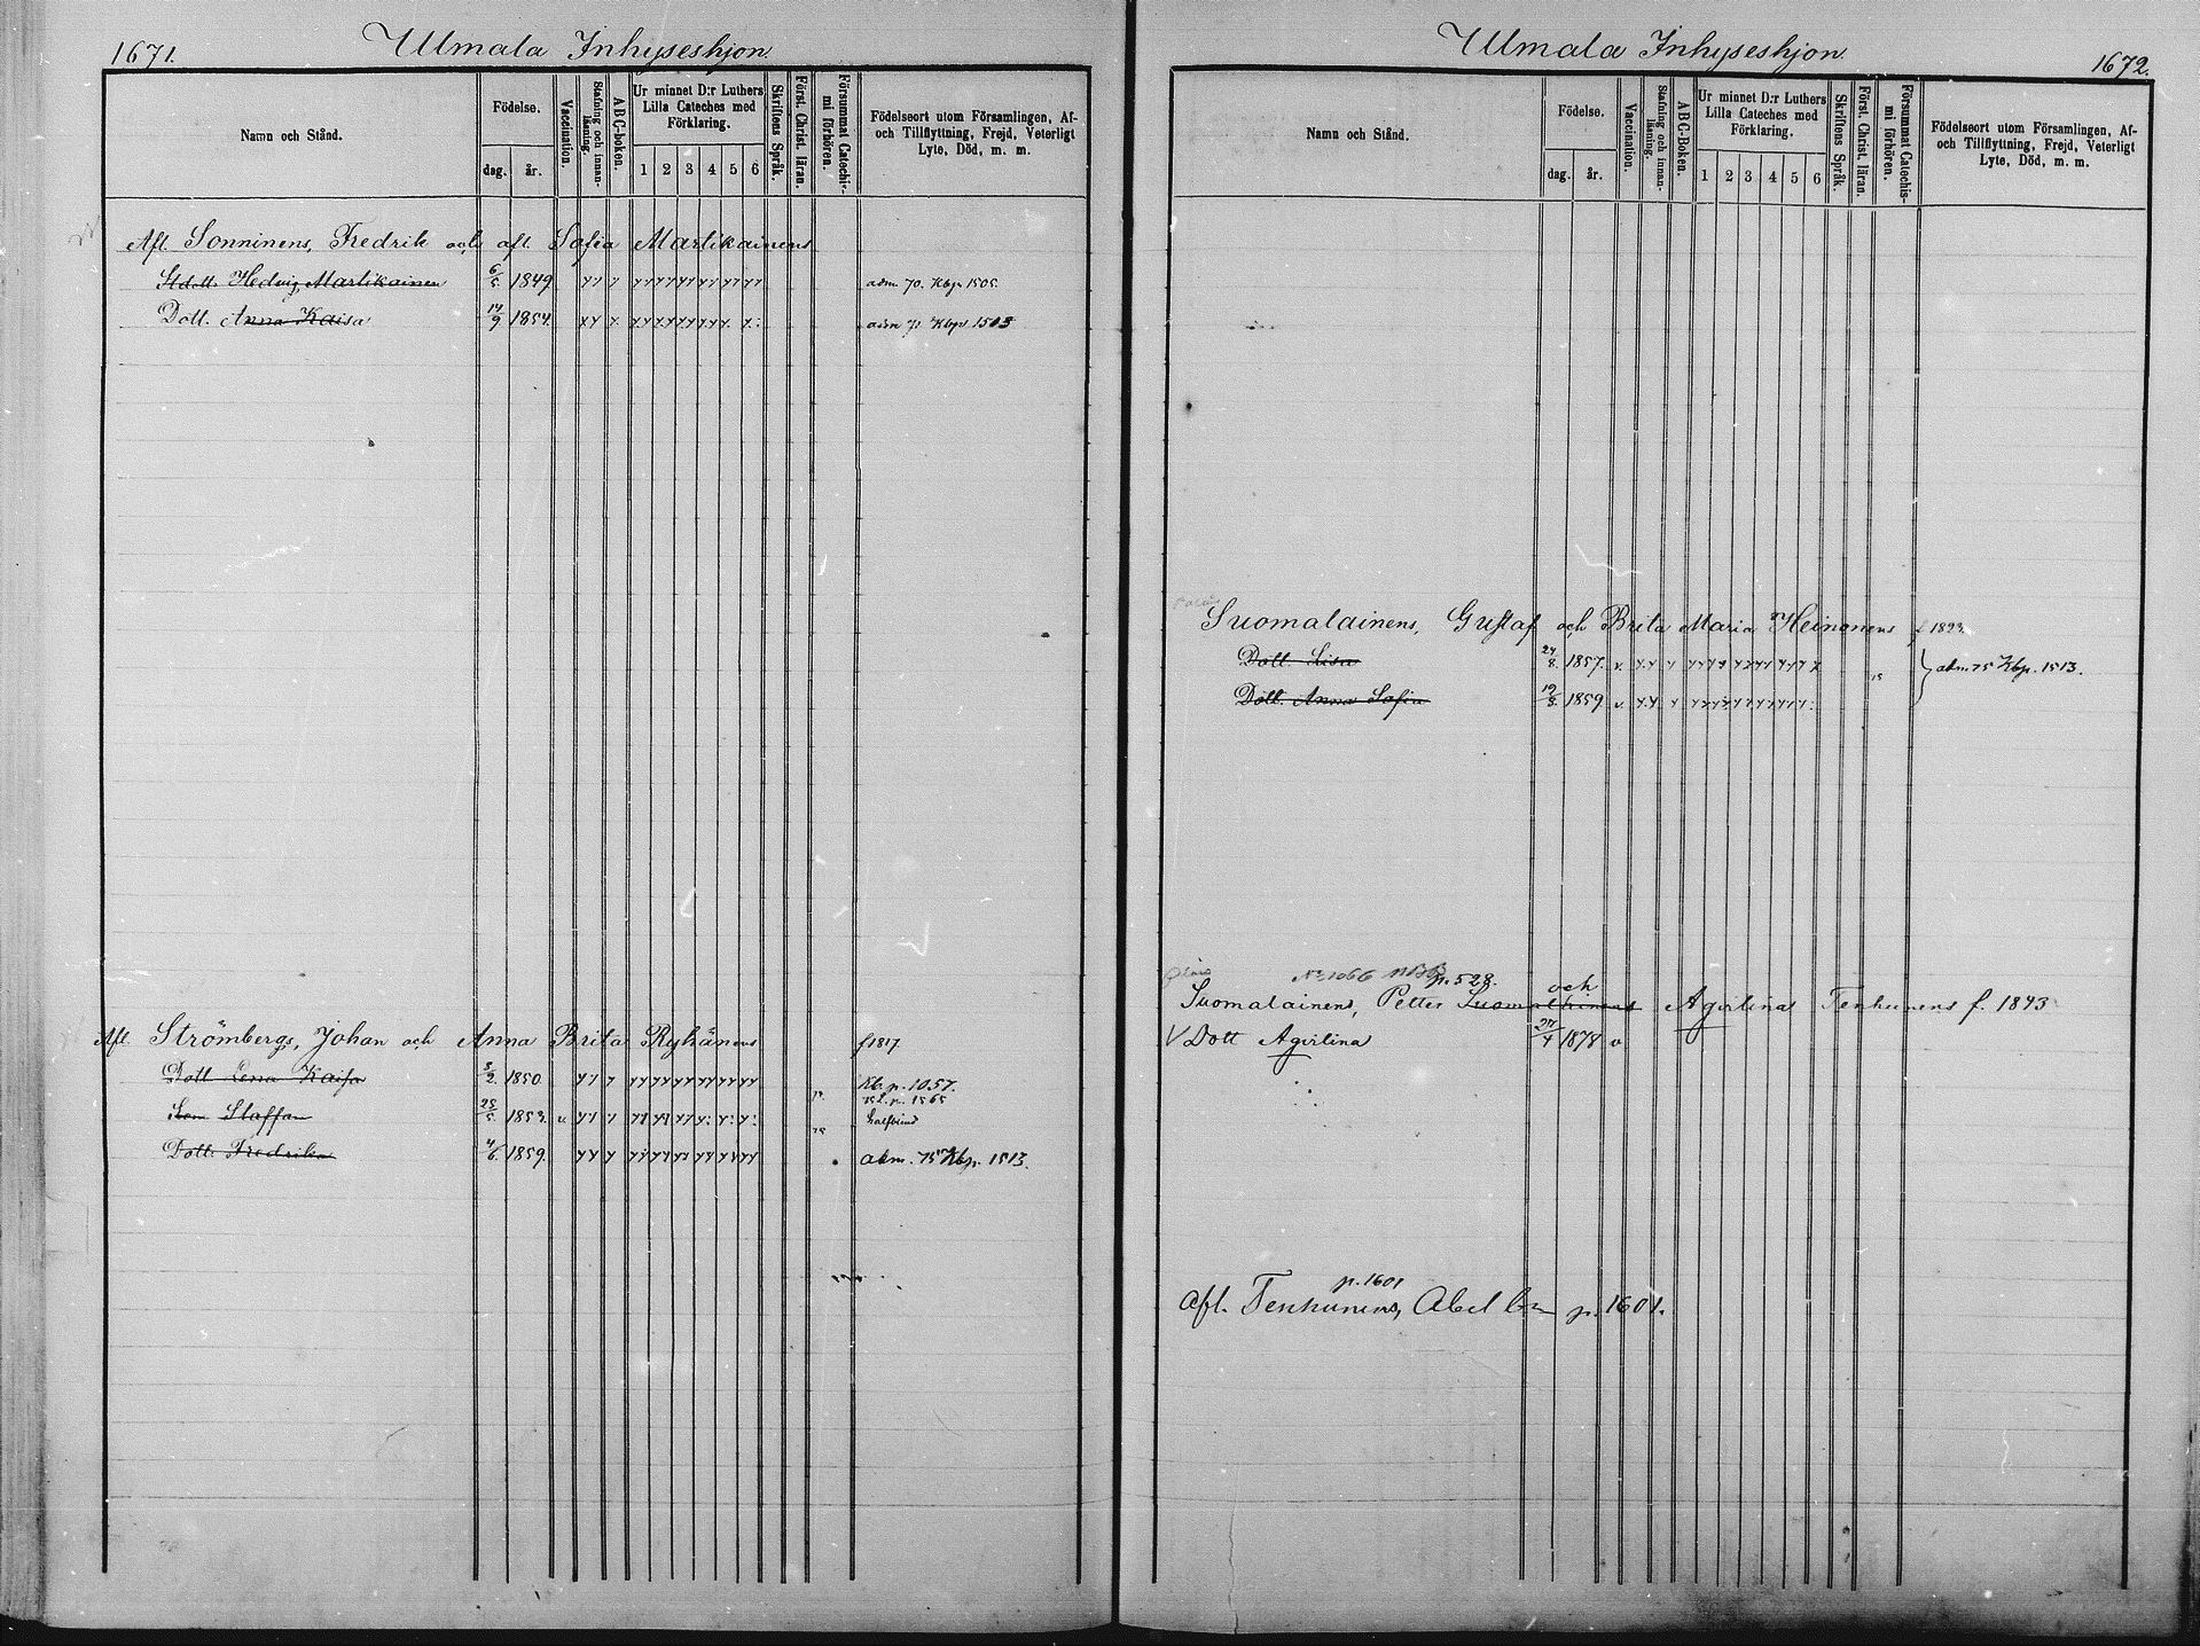 1671.
Ulmala Inhyseshjon.
Namn och Stånd.
Födelse.
dag.
år.
Vaccination.
Stafning och innan-
läsning.
ABC-boken.
Ur minnet D:r Luthers
Lilla Cateches med
Förklaring.
1 2 3 4 5 6
Skriftens Språk.
Först. Christ. läran.
Försummat Catechi-
mi förhören.
Födelseort utom Församlingen, Af-
och Tillflyttning, Frejd, Veterligt
Lyte, Död, m. m.
Afl. Sonninens, Fredrik och afl. Sofia Martikainens
Hedvig Martikainen 6/5 1849 adm 70. Kbp. 1505.
Dott. Anna Kaisa 14/9 1854. adm 71 Kbp. 1513
Afl. Strömbergs, Johan och Anna Brita Ryhänens f 1817
Dott. Lena Kaisa 5/2. 1850. Kb. p. 1057.
p. 1565
Son Staffan 25/5. 1853. v halfblind
75
Dott. Fredrika 4/6. 1859. adm. 75 Kbp. 1513.
Ulmala Inhyseshjon.
1672.
Namn och Stånd.
Födelse.
dag.
år.
Vaccination.
Stafning och innan-
läsning.
ABC-Boken.
Ur minnet D:r Luthers
Lilla Cateches med
Förklaring.
1 2 3 4 5 6
Skriftens Språk.
Först. Christ. läran.
Försummat Catechis-
mi förhören.
Födelseort utom Församlingen, Af-
och Tillflyttning, Frejd, Veterligt
Lyte, Död, m. m.
Suomalainens, Gustaf och Brita Maria Heinonens f 1823.
Dott. Lisa 24/8. 1857. v. adm 75 Kbp. 1513.
Dott. Anna Sofia 19/8. 1859. v.
No 1066 p. 528.
och
Suomalainens, Petter Suomalainens Agvilina Tenhunens f. 1843
V Dott Agvilina 27/4 1878 v
p. 1601
Afl. Tenhunens, Abel p. 1601.